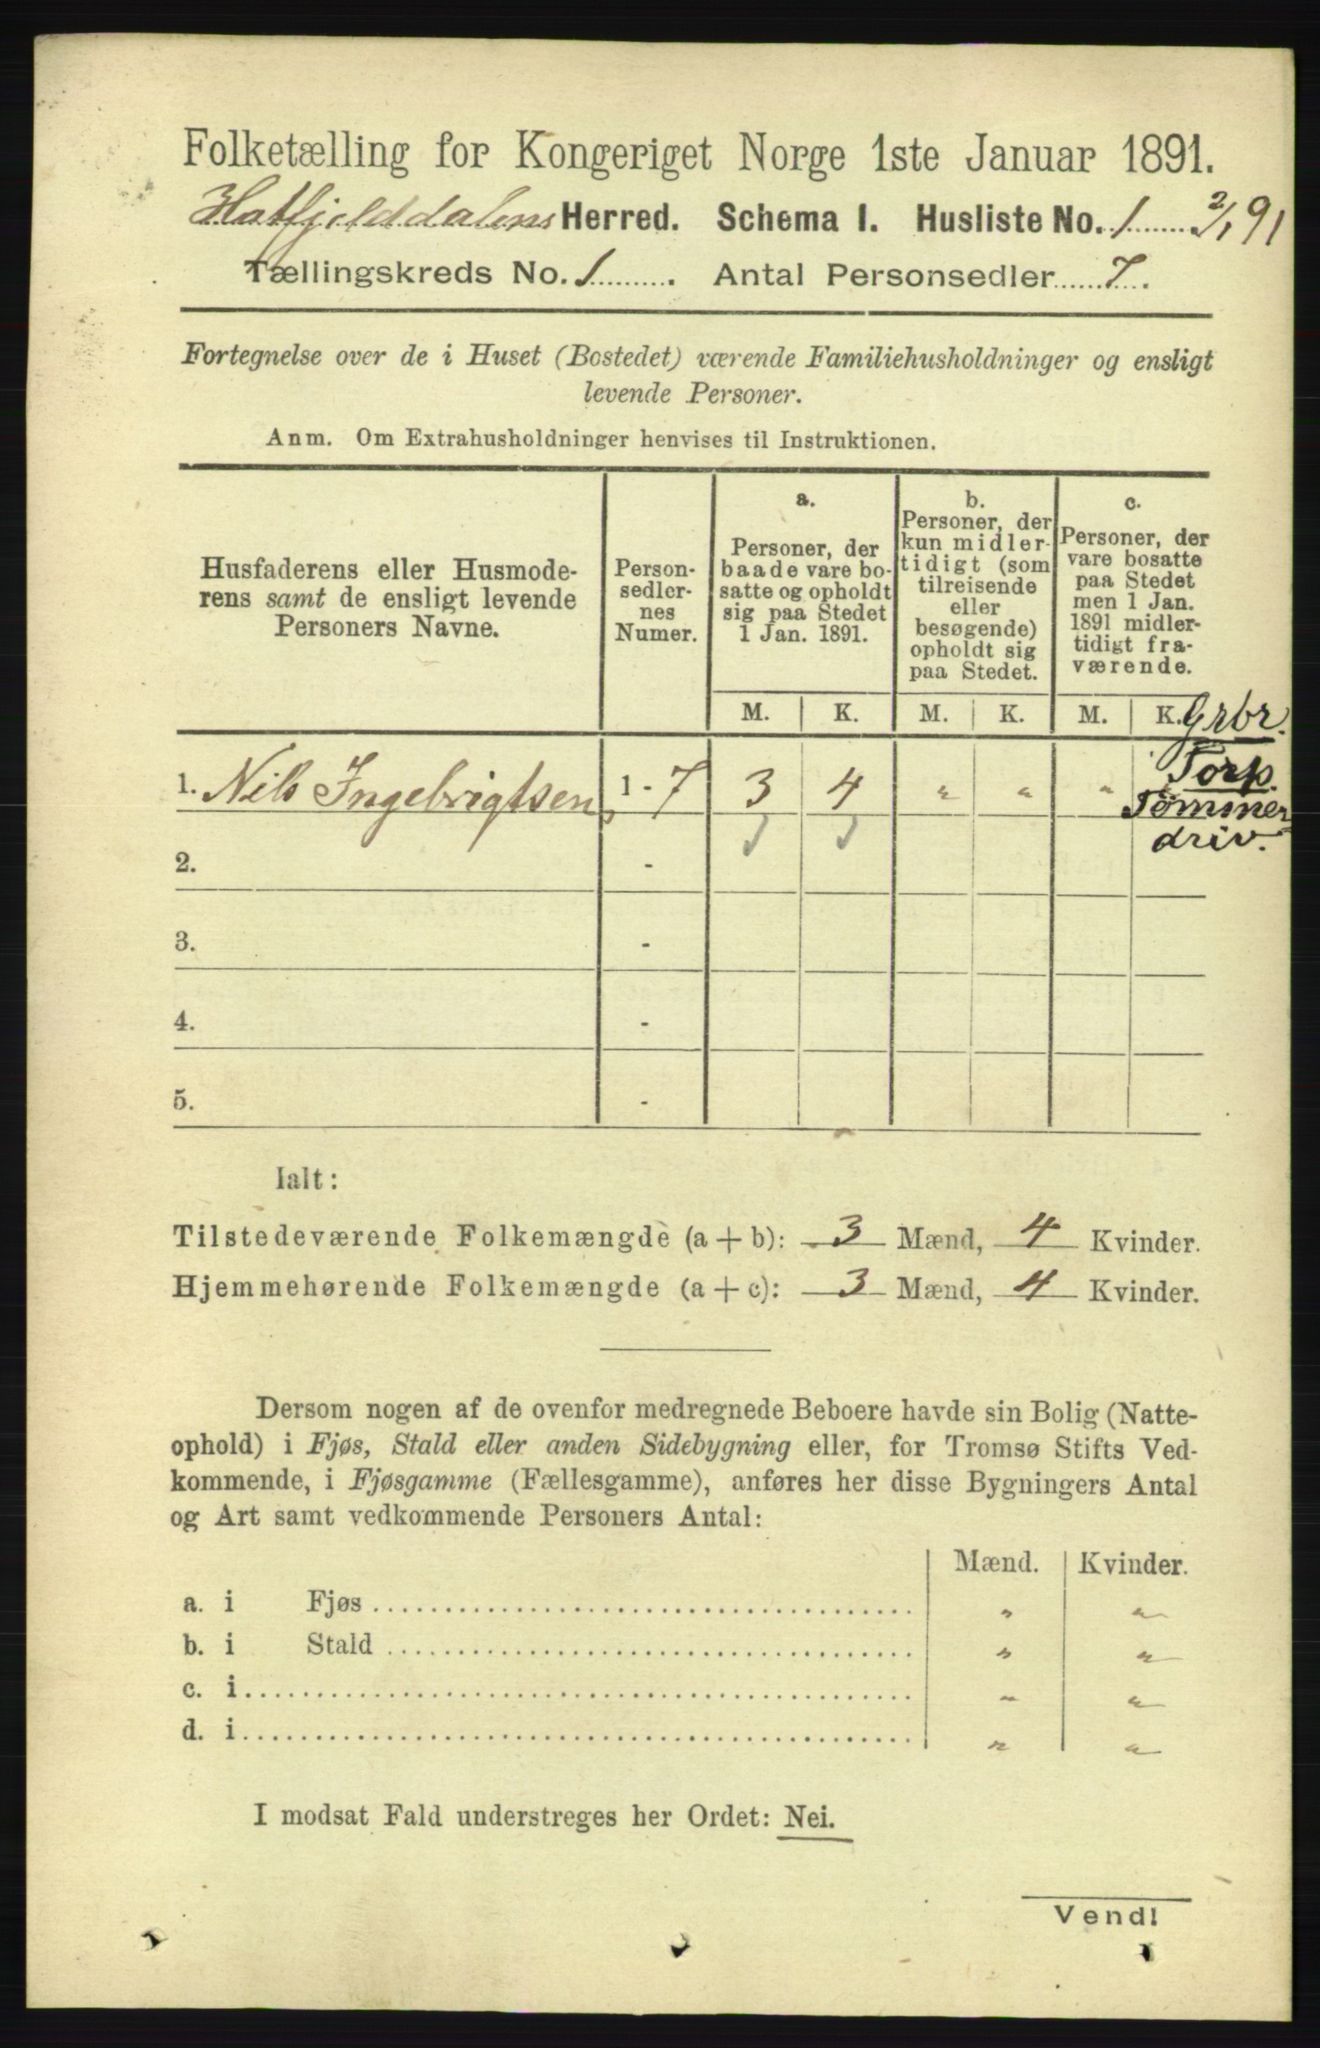 Folketælling for Kongeriget Norge 1ste Januar 1891.
Hatfjelddalens Herred. Schema I. Husliste No. 1 2/1 91
Tællingskreds No. 1. Antal Personsedler 7.
Fortegnelse over de i Huset (Bostedet) værende Familiehusholdninger og ensligt
levende Personer.
Anm. Om Extrahusholdninger henvises til Instruktionen.
Husfaderens eller Husmode-
rens samt de ensligt levende
Personers Navne.
Person-
sedler-
nes
Numer.
a.
Personer, der
baade vare bo-
satte og opholdt
sig paa Stedet
1 Jan. 1891.
b.
Personer, der
kun midler-
tidigt (som
tilreisende
eller
besøgende)
opholdt sig
paa Stedet.
c.
Personer, der
vare bosatte
paa Stedet
men 1 Jan.
1891 midler-
tidigt fra-
værende.
M. K. M. K. M. K.
Grbr.
Torp.
Tømmer
driv.
1. Nils Ingebrigtsen, 1 - 7 3 4 " " "
2. -
3. -
4. -
5. -
Ialt:
Tilstedeværende Folkemængde (a + b): 3 Mænd, 4 Kvinder.
Hjemmehørende Folkemængde (a + c): 3 Mænd, 4 Kvinder.
Dersom nogen af de ovenfor medregnede Beboere havde sin Bolig (Natte-
ophold) i Fjøs, Stald eller anden Sidebygning eller, for Tromsø Stifts Ved-
kommende, i Fjøsgamme (Fællesgamme), anføres her disse Bygningers Antal
og Art samt vedkommende Personers Antal:
Mænd. Kvinder.
a. i Fjøs " "
b. i Stald " "
c. i " "
d. i " "
I modsat Fald understreges her Ordet: Nei.
Vend!